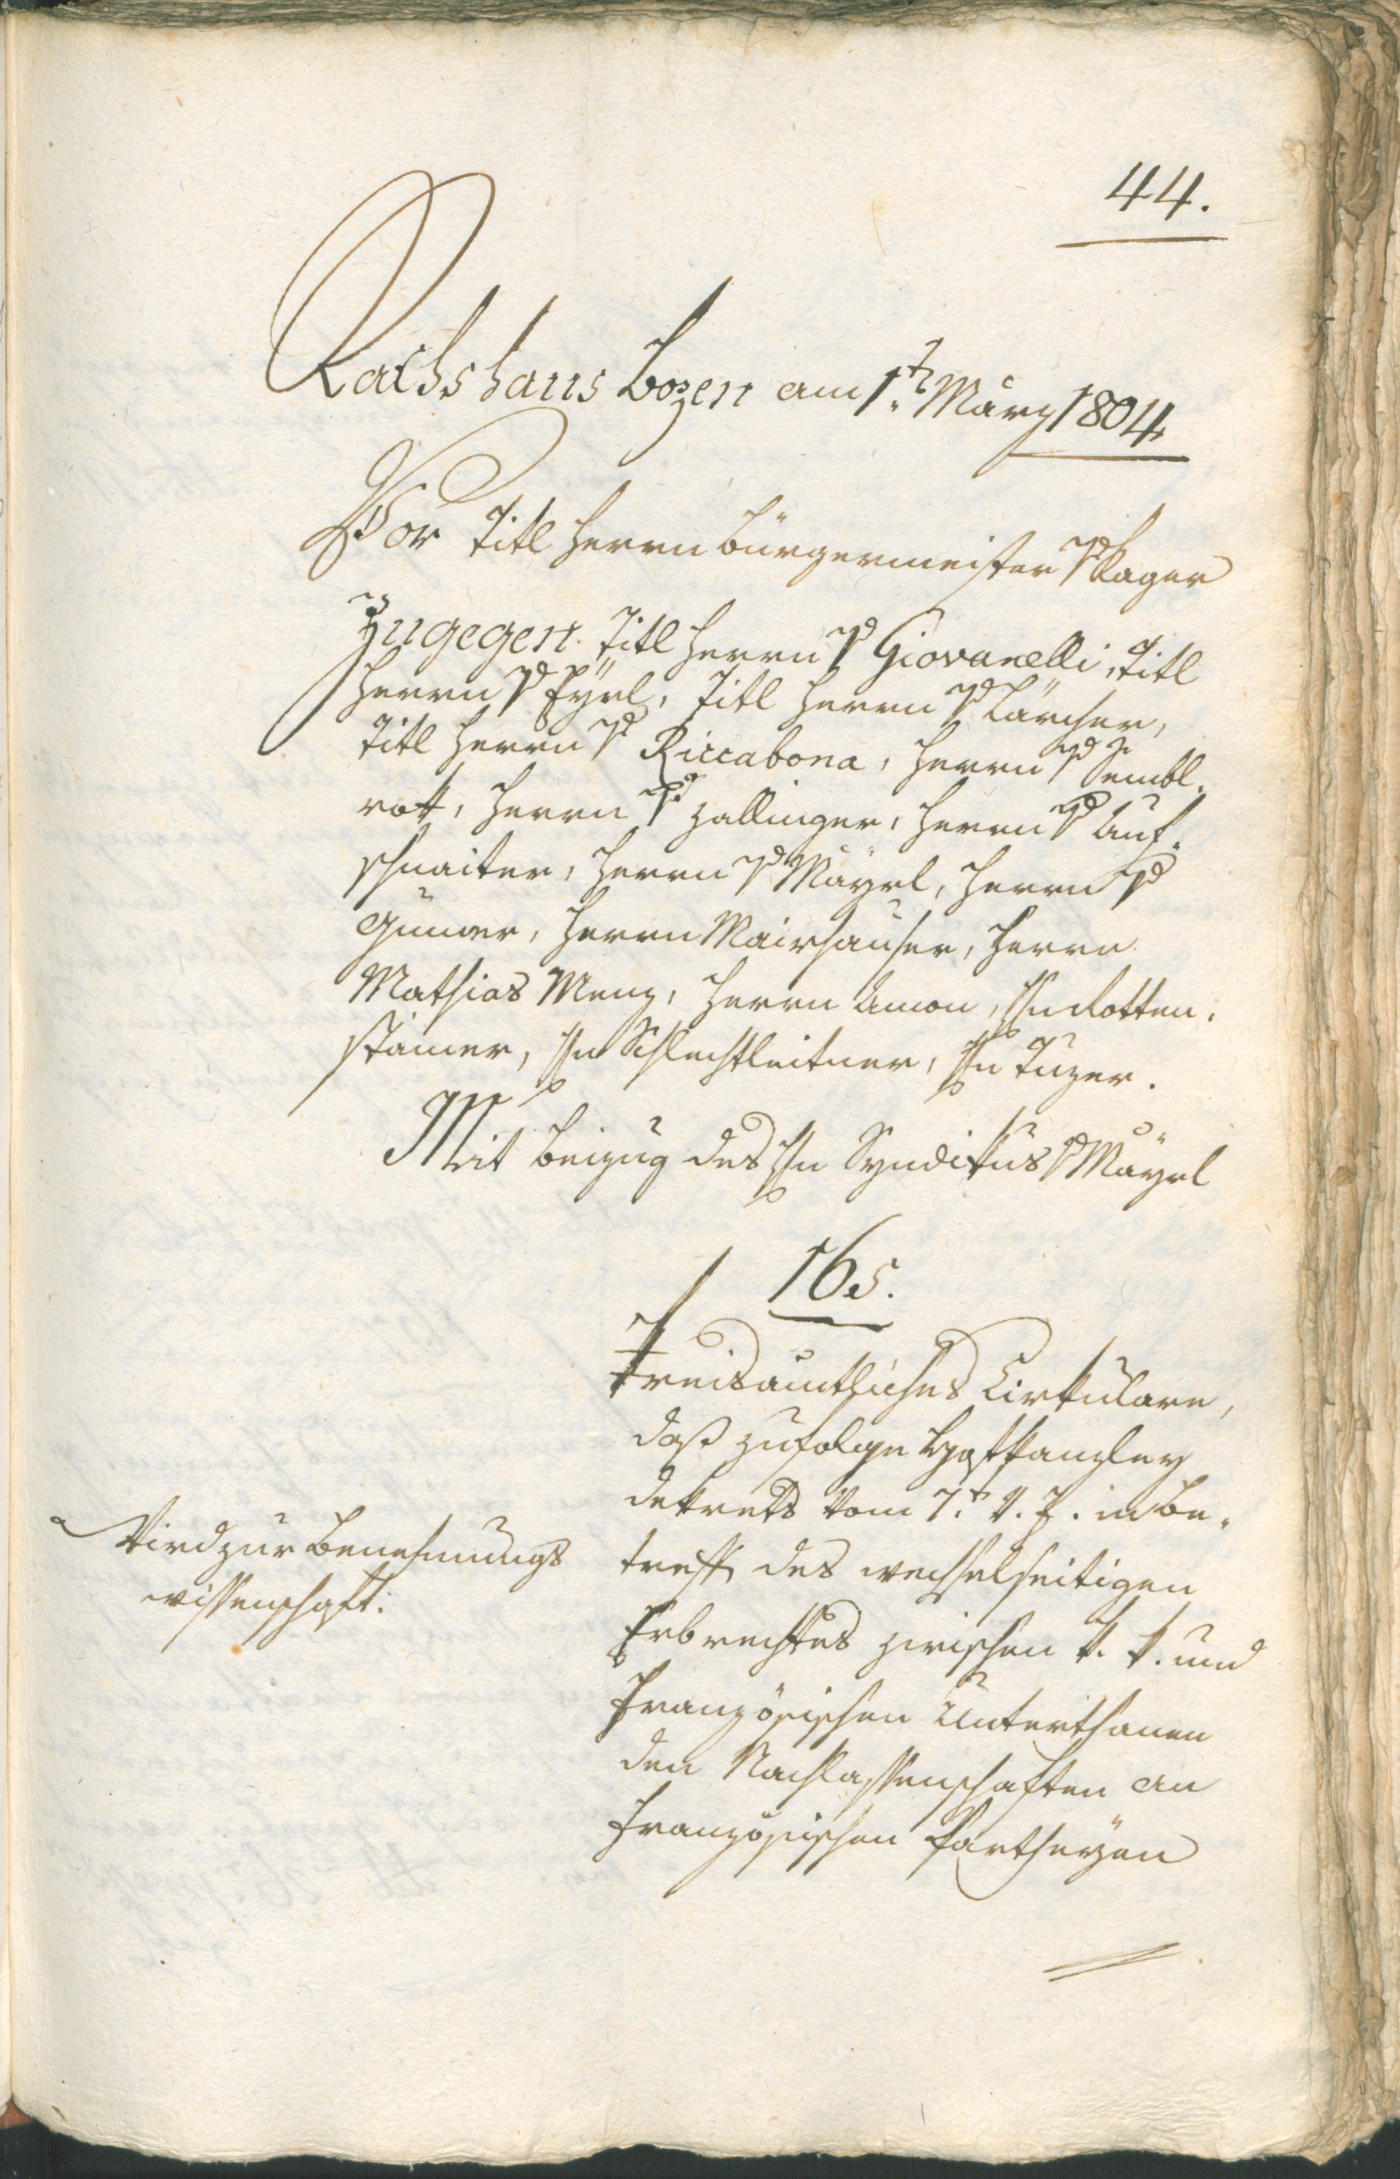 44.
Rathshaus Bozen am 1t. März 1804.
Vor Titl Herrn Bürgermeister v Kager
Zugegen. Titl Herrn v Giovanelli, Titl
Herrn v Eÿrl, Titl Herrn v Larcher,
Titl Herrn v Riccabona, Herrn v Sembl.
rokh, Herrn v. Zallinger, Herrn v Auf.
schnaiter, Herrn v Maÿrl, Herrn v
Gumer, Herrn Mairhauser, Herrn
Mathias Menz, Herrn Amon, Hn Rotten.
stainer, Hn Schlechtleitner, Hn Tuzer.
Mit Beizug des Hn Syndikus v Maÿrl
165.
Kreisämtliches Cirkulare,
daß zufolge Hofkanzley
dekrets vom 7.t v. J. in Be.
treff des wechselseitigen
Erbrechtes zwischen k. k. und
französischen Unterthanen
den Nachlassenschaften an
französischen Partheÿen
Wird zur Benehmungs
wissenschaft.